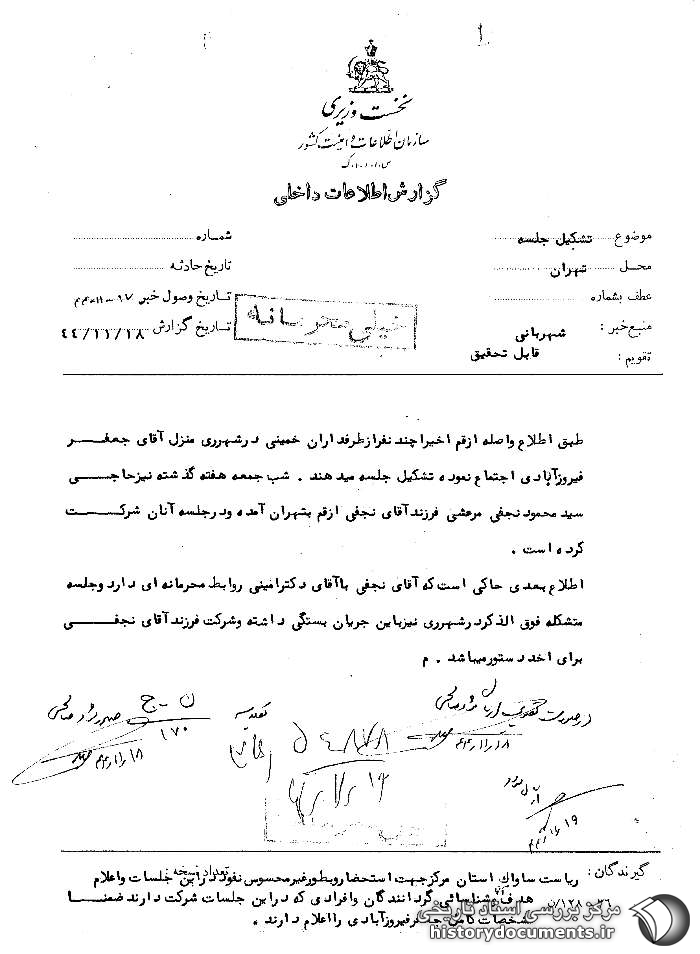 نخست وزیری
سازمان اطلاعات و امنیت کشور
س.ا.و.ا.ک
گزارش اطلاعات داخلی
موضوع تشکیل جلسه
شماره
محل تهران
تاریخ حادثه
عطف بشماره
تاریخ وصول خبر
منبع خبر : شهربانی
تاریخ گزارش ۴۴/۱۱/۱۸
خیلی محرمانه
تقویم : قابل تحقیق
طبق اطلاع واصله ازقم اخیرا چند نفر از طرفداران خمینی درشهرری منزل آقای جعفر
فیروزآبادی اجتماع نموده تشکیل جلسه میدهند . شب جمعه هفته گذشته نیز حاجی
سید محمود نجفی مرعشی فرزند آقای نجفی ازقم بتهران آمده ودرجلسه آنان شرکت
کرده است .
اطلاع بعدی حاکی است که آقای نجفی باآقای دکترامینی روابط محرمانه ای دارد وجلسه
متشکله فوق الذکر درشهرری نیز باین جریان بستگی داشته وشرکت فرزند آقای نجفی
برای اخذ دستور میباشد . م
۴۴/۱۱/۱۸
۱۷۰
۴۴/۱۱/۱۸
گیرندگان :
تعداد نسخه
ریاست ساواک استان مرکز جهت استحضار وبطور غیر محسوس نفوذ دراین جلسات واعلام
هدف وشناسائی گردانندگان وافرادی که دراین جلسات شرکت دارند ضمنا
مشخصات کامل جعفر فیروزآبادی را اعلام دارند .
مرکز بررسی اسناد تاریخی
historydocuments.ir